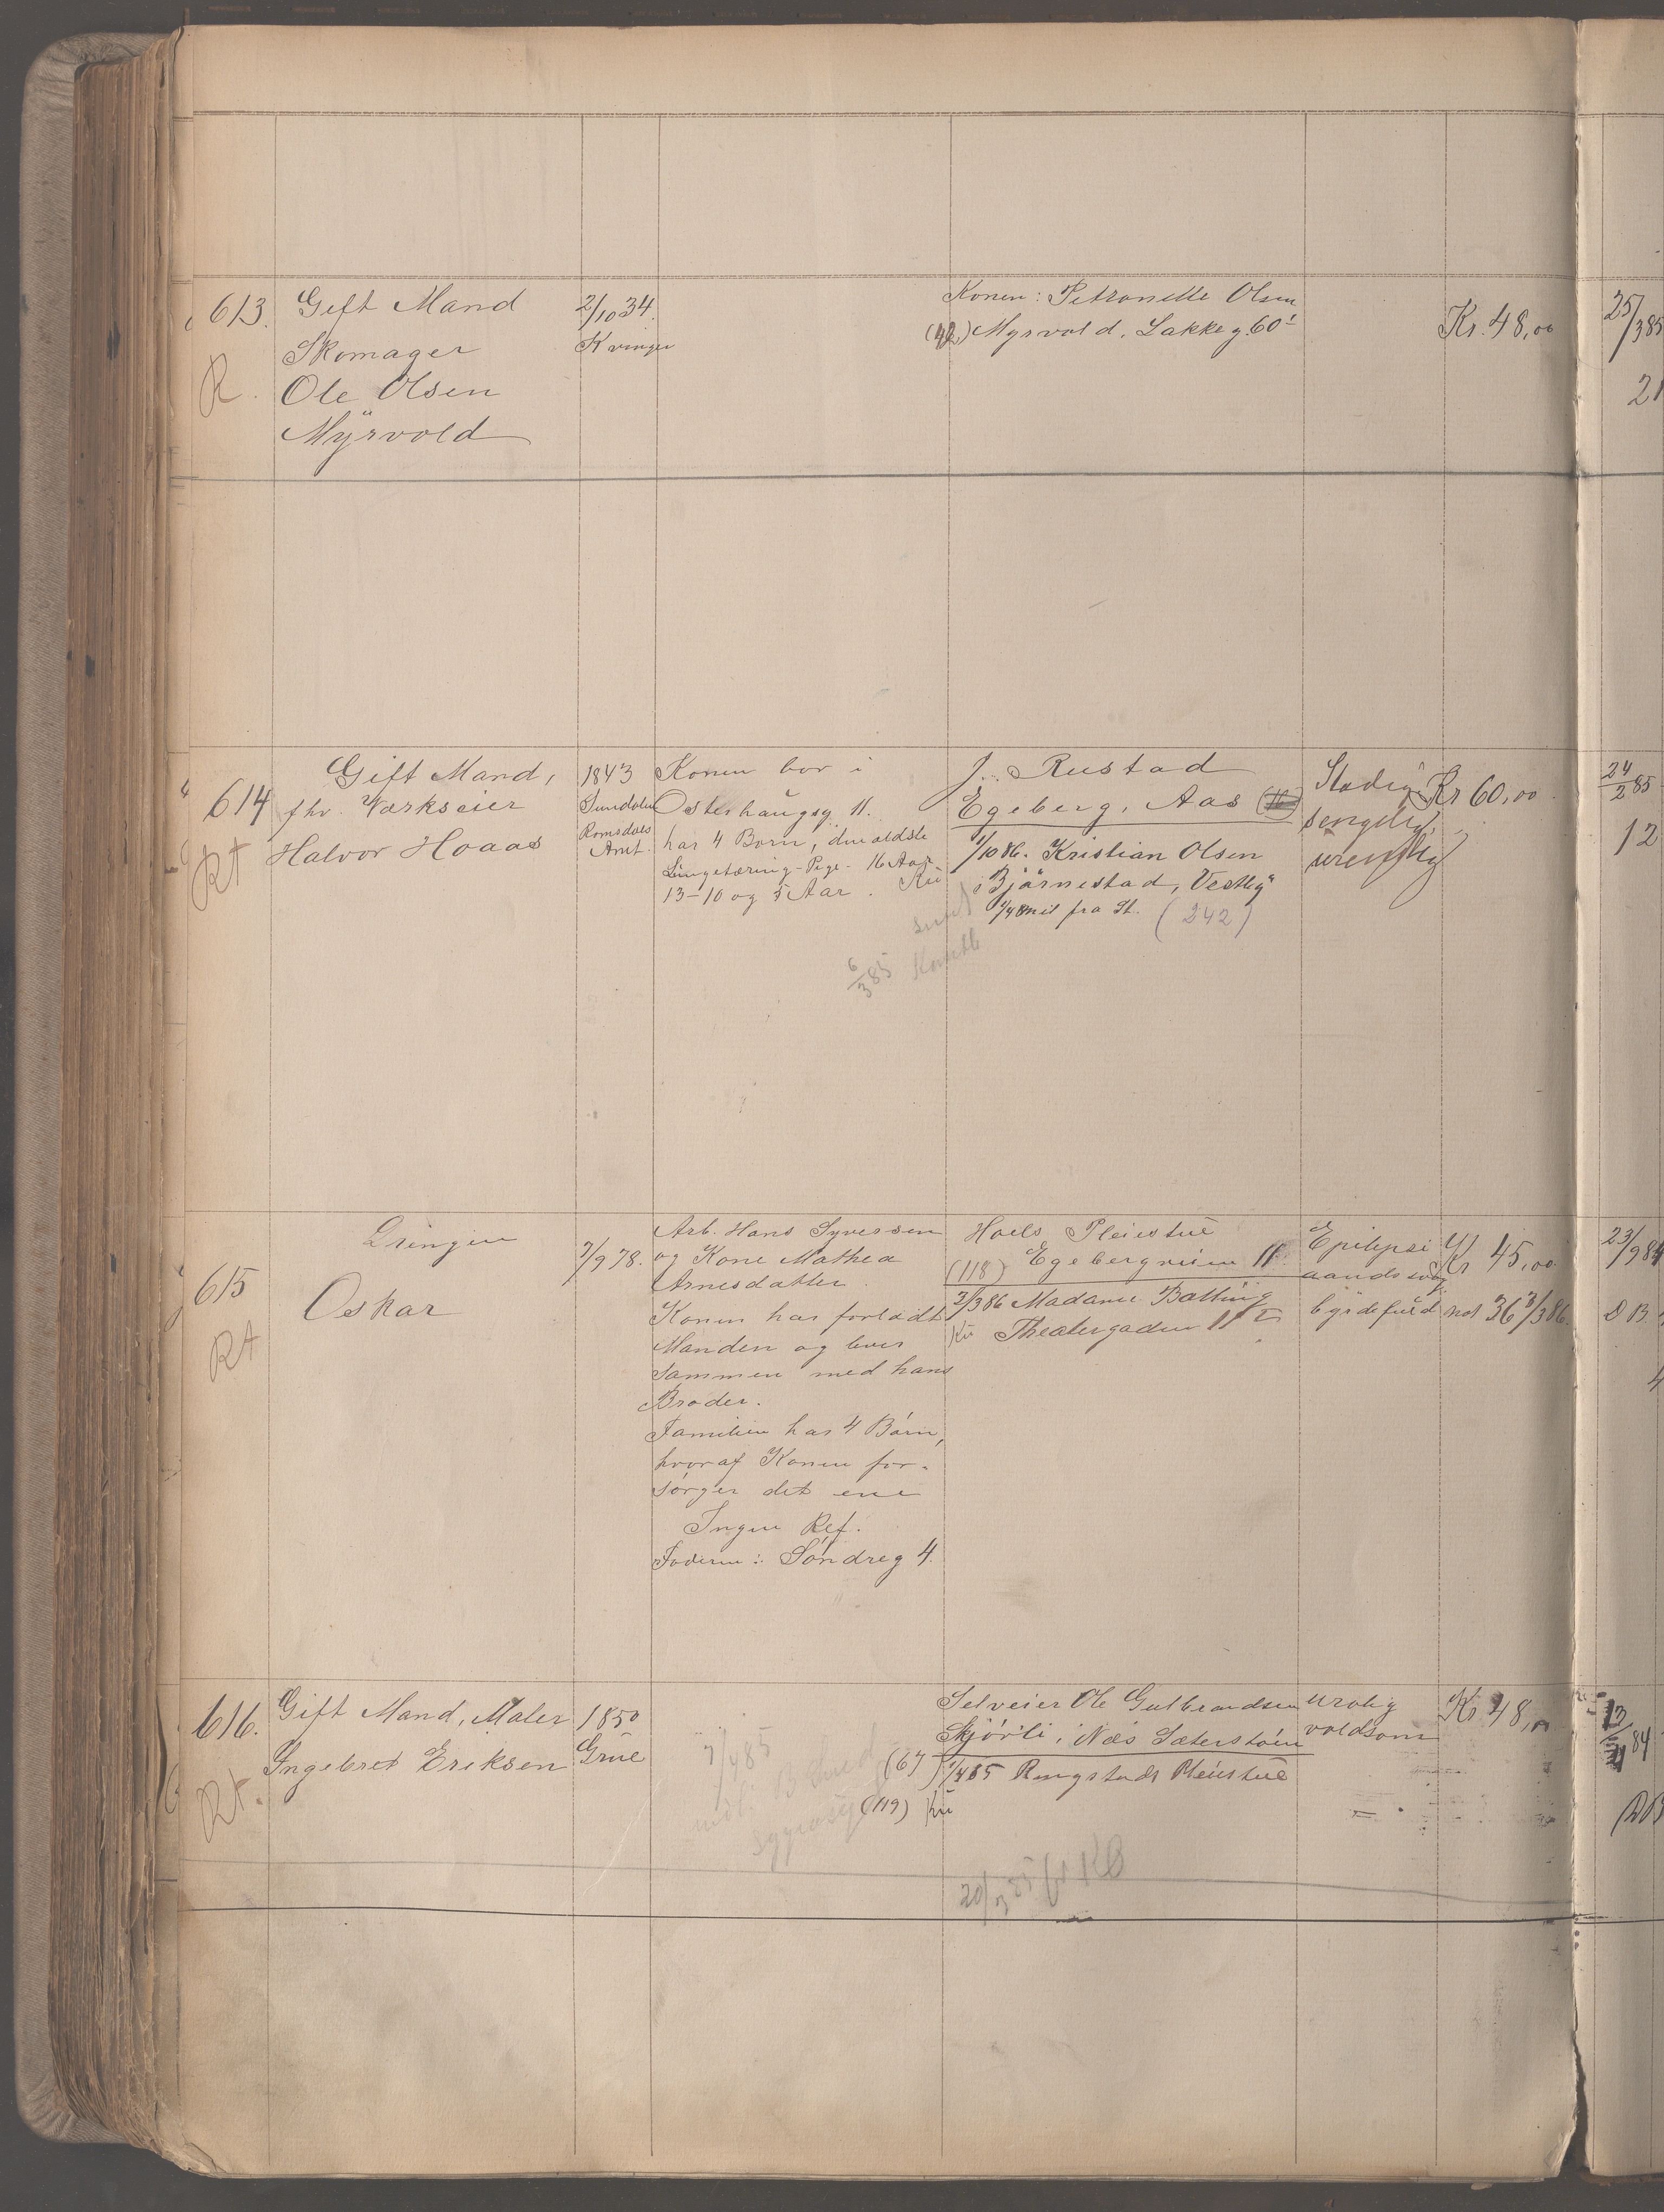 613. Gift Mand
Skomager
Ole Olsen
Myrvold
R.
2/10 34.
Kvinger
Konen: Petronelle Olsen
Myrvold. Lakkeg 60
Kr. 48,00
25/3 85
21
614 Gift Mand,
fhv. Værkseier
Halvor Hoaas
Rt
1843
Sundalen
Romsdals
Amt.
Konen bor i
Osterhaugsg 11.
har 4 Born, den ældste
Lungetæring - Pige - 16 Aar
13-10 og 5 Aar.
6/3 85
J. Rustad
Egeberg, Aas
1/10 86. Kristian Olsen
Bjørnestad, Vestby
1/4 mil fra St. (242)
Stadig
sengelig,
urenslig
Kr 60,00
24/2 85
12
615
Rt
Drengen
Oskar
7/9 78.
Arb. Hans Syversen
og Kone Mathea
Arnesdatter.
Konen har forladt
Manden og lever
sammen med hans
Broder.
Familien har 4 Børn,
hvoraf Konen for-
sørger det ene
Ingen Ref.
Faderen: Søndreg 4.
Hoels Pleiestue
(118) Egebergveien 11
3/3 86 Madame Bætting
Theatergaden 11
Epilepsi
aandssvag
byrdefuld
Kr 45,00
ned 36 3/3 86.
23/9 84
DB
4
616. Gift Mand, Maler
Ingebret Eriksen
Rt.
1850
Grue
7/4 85
(67)
(119)
Selveier Ole Gulbrandsen
Skjørli, Næs Sæterstøen
1/4 85 Ringstads Pleiestue
20/3 85
urolig
voldsom
Kr 48,00
13
84
DB